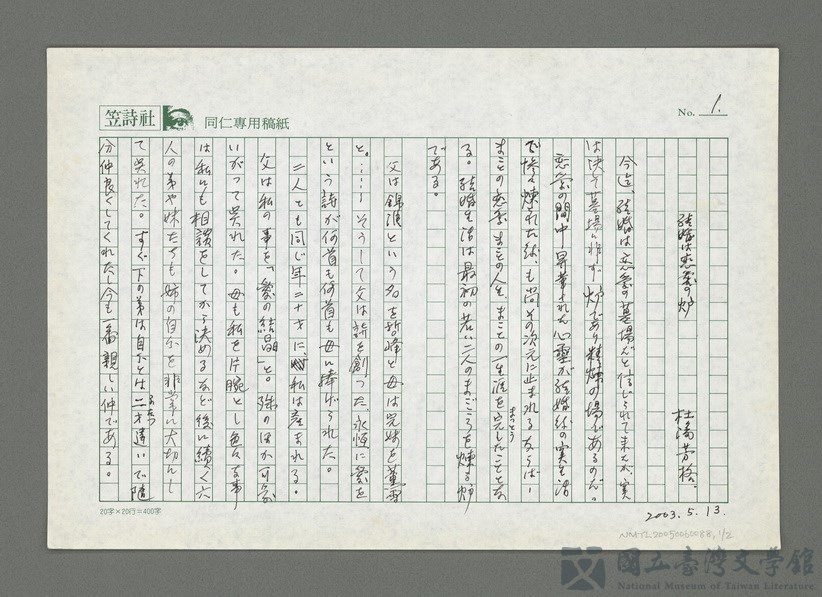 笠詩社
同仁專用稿紙
No. 1.
結婚は恋愛の炉
杜潘芳格
今迄、結婚は恋愛の墓場だと信じられて来たが、実
は決して墓場に非ず、炉であり精煉の場であるのだ。
恋愛の間中昇華された心霊が結婚后の実生活
で惨々煉された后も尚、その次元に止まれるならばー
まことの恋愛、まことの人生、まことの一生涯を完うしたことにな
まっとう
る。結婚生活は最初の若い二人のまごころを煉る炉
である。
父は錦淮という名を
と。……そうして父は詩を創った、永恒に愛を
という詩が何首も何首も母に捧げられた。
二人とも同じ年二十才に、私は産まれる。
父は私の事を「愛の結晶」と。殊のほか可愛
いがって呉れた。母も私を片腕とし色々な事
は私にも相談をしてから決めるなど後に続く六
人の弟や妹たちも姉の自分を非常に大切にし
て呉れた。すぐ下の弟は自分とは二才違いで随
ふたつ
分仲良くしてくれたし今も一番親しい仲である。
20字×20行=400字
2003.5.13.
NMTL20050060088, 1/2
國立臺灣文學館
National Museum of Taiwan Literature